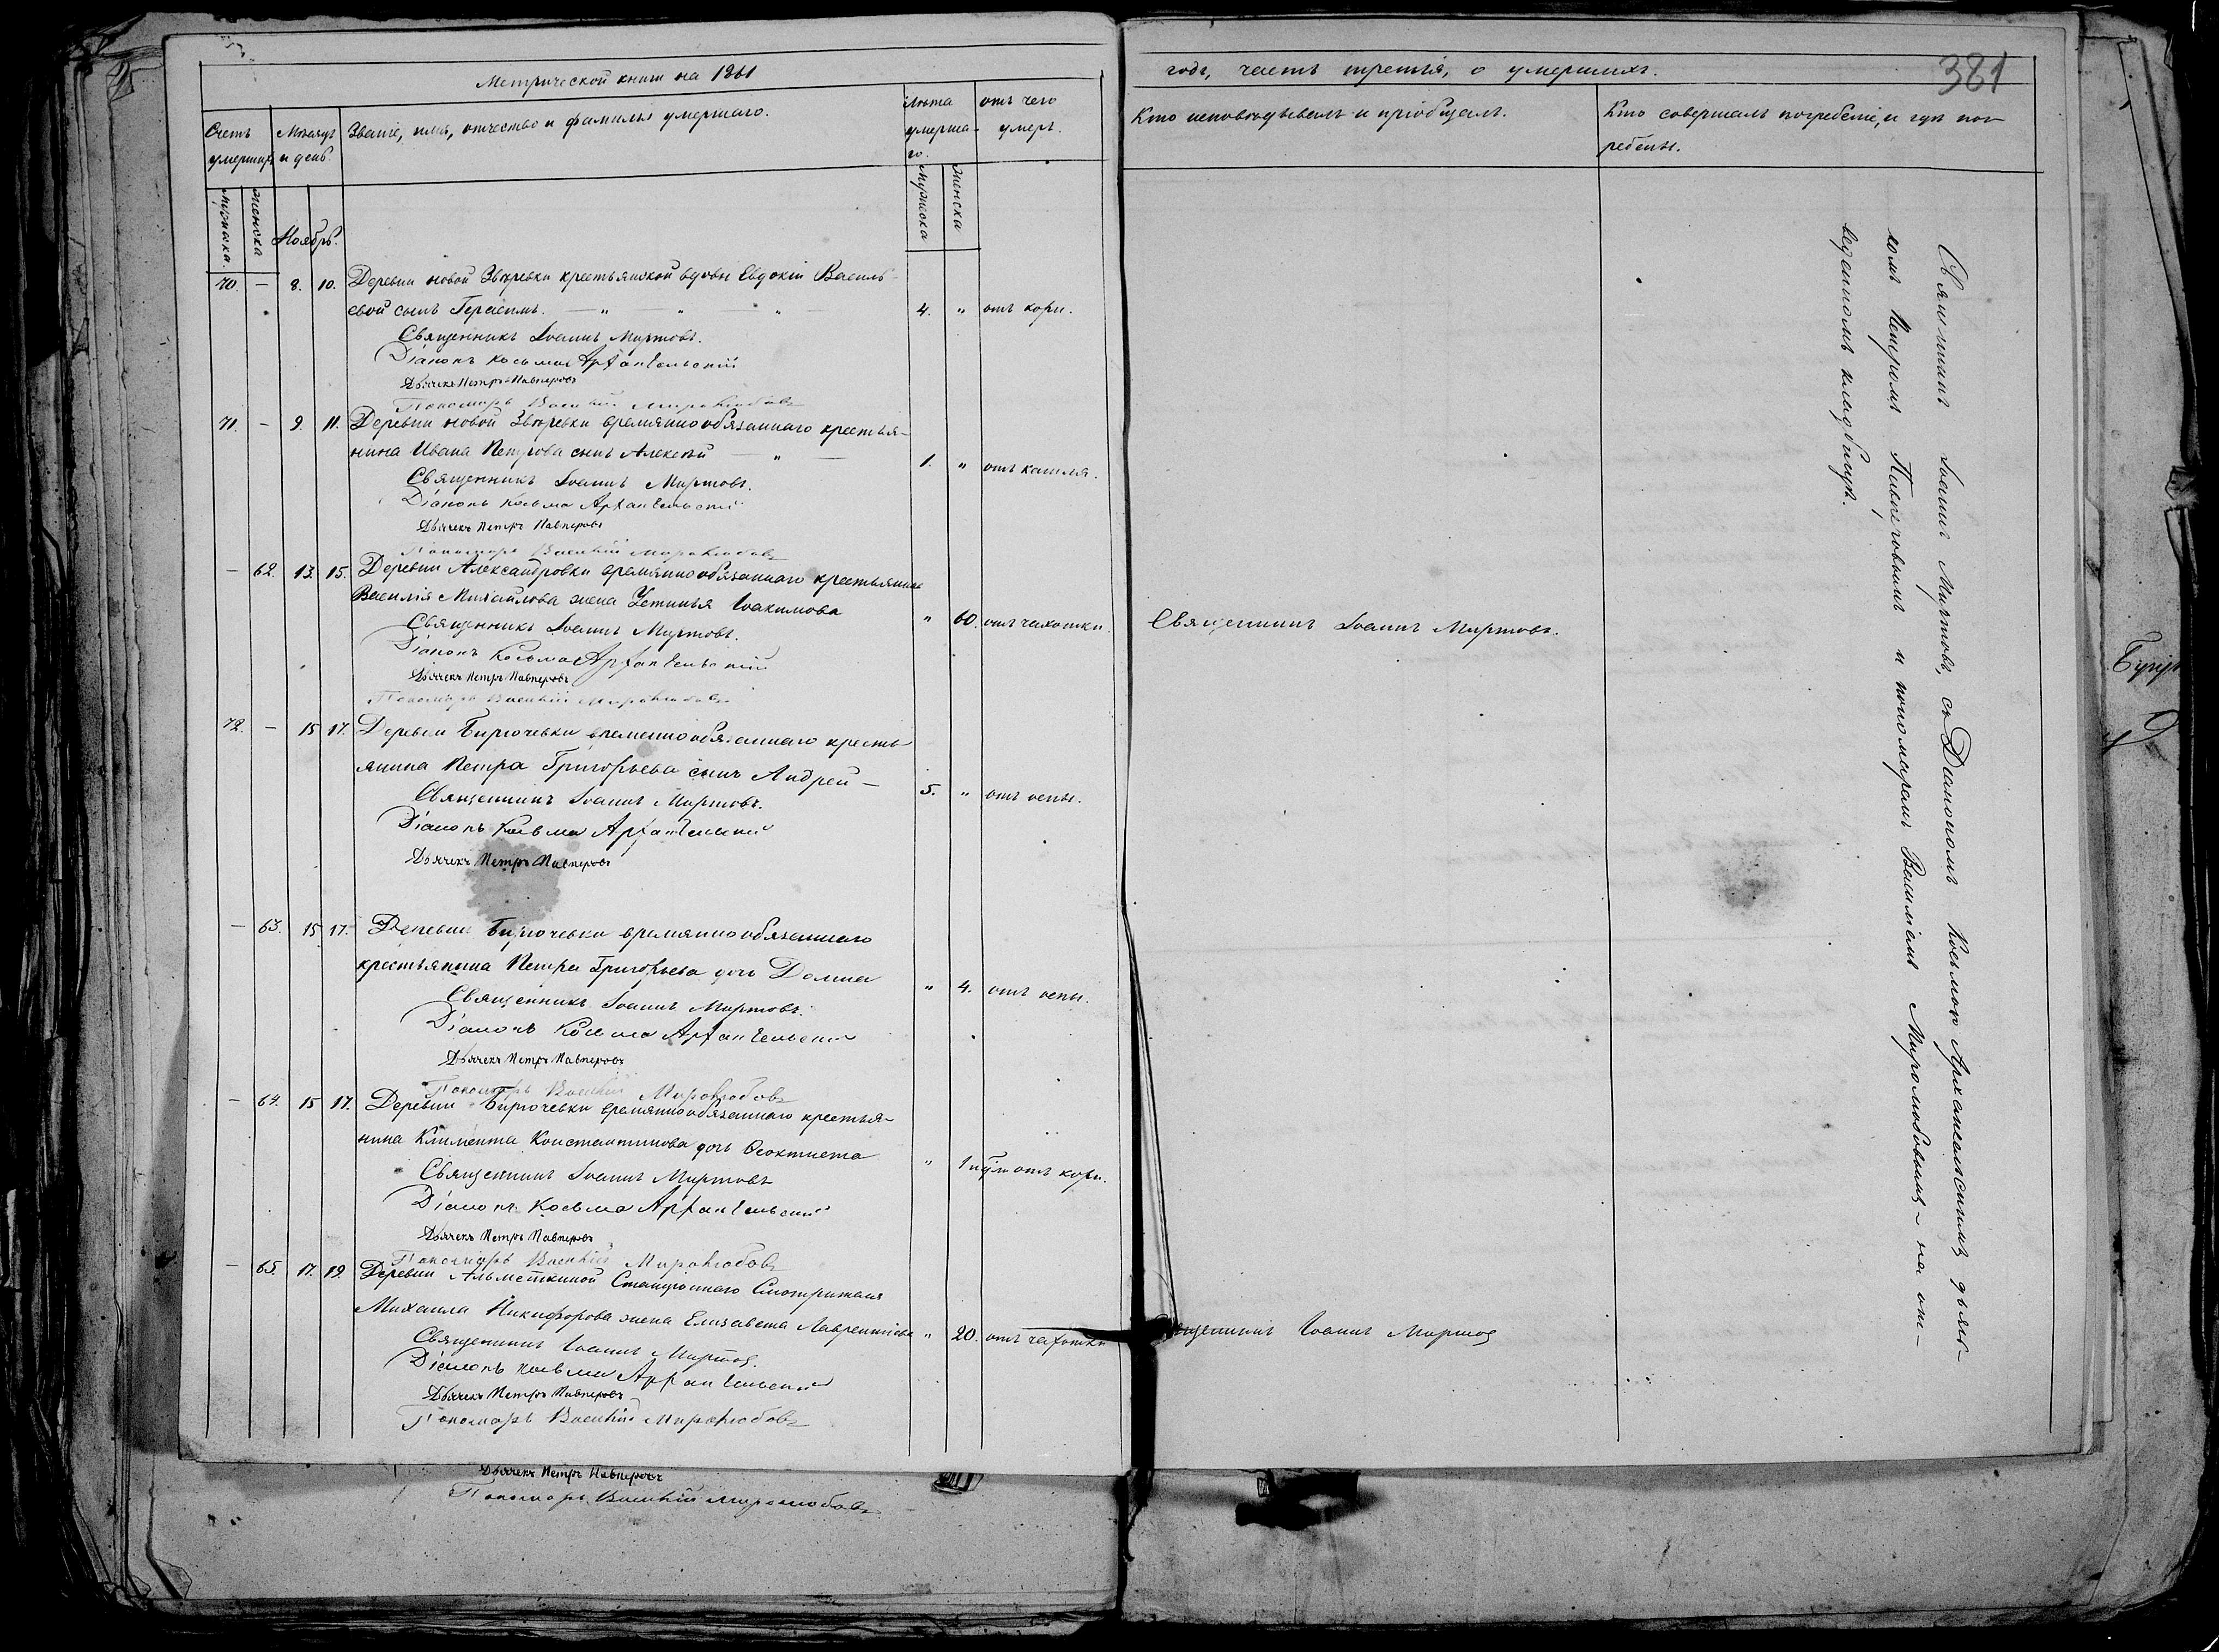 Метрической книги на 1861
Счетъ умершихъ
Мѣсяцъ и день.
Званіе, имя, отчество и фамилья умершаго.
Лѣта умерша-
го.
отъ чего
умеръ.
мужеска
женска
Ноябрь.
мужеска
женска
70. — 8. 10. Деревни новой Звѣревки крестьянской вдовы Евдокіи Василь-
евой сынъ Герасимъ. — „ — „ — „ — 4. „ отъ кори.
Священникъ Іоаннъ Миртовъ.
Діаконъ Косьма Архангельскій
Дьячекъ Петръ Павперовъ
Пономарь Василій Миролюбовъ
71. — 9. 11. Деревни новой Звѣревки времянно обязаннаго крестья-
нина Ивана Петрова сынъ Алексѣй — „ — 1. „ отъ кашля.
Священникъ Іоаннъ Миртовъ.
Діаконъ Косьма Архангельскій
Дьячекъ Петръ Павперовъ
Пономарь Василій Миролюбовъ
— 62. 13. 15. Деревни Александровки времянно обязаннаго крестьянина
Василія Михайлова жена Устинья Іоакимова „ 60. отъ чахотки.
Священникъ Іоаннъ Миртовъ.
Діаконъ Косьма Архангельскій
Дьячекъ Петръ Павперовъ
Пономарь Василій Миролюбовъ
72. — 15 17. Деревни Бирючевки временно обязаннаго кресть-
янина Петра Григорьева сынъ Андрей — 5. „ отъ оспы.
Священникъ Іоаннъ Миртовъ.
Діаконъ Косьма Архангельскій
Дьячекъ Петръ Павперовъ
— 63. 15. 17. Деревни Бирючевки времянно обязаннаго
крестьянина Петра Григорьева дочь Домна „ 4. отъ оспы.
Священникъ Іоаннъ Миртовъ.
Діаконъ Косьма Архангельскій
Дьячекъ Петръ Павперовъ
Пономарь Василій Миролюбовъ
— 64. 15 17. Деревни Бирючевки времянно обязаннаго крестья-
нина Климента Константинова дочь Ѳеоктиста „ 1 отъ кори.
Священникъ Іоаннъ Миртовъ
Діаконъ Косьма Архангельскій
Дьячекъ Петръ Павперовъ
Пономарь Василій Миролюбовъ
— 65. 17. 19. Деревни Альметкиной Станціоннаго Смотрителя
Михаила Никифорова жена Елизавета Лаврентіева „ 20. отъ чахотки
Священникъ Іоаннъ Миртов.
Діаконъ Косьма Архангельскій
Дьячекъ Петръ Павперовъ
Пономарь Василій Миролюбовъ
Дьячекъ Петръ Павперовъ
Пономарь Василій Миролюбовъ
годъ, часть третья, о умершихъ.
381
Кто исповѣдывалъ и пріобщалъ.
Кто совершалъ погребеніе, и гдѣ пог-
ребены.
Священникъ Іоаннъ Миртовъ.
Священникъ Іоаннъ Миртов
Священникъ Іоаннъ Миртовъ, съ Діакономъ Косьмою Архангельскимъ, дьяч-
комъ Петромъ Павперовымъ и пономаремъ Василіемъ Миролюбовымъ — на от-
веденномъ кладбищѣ.